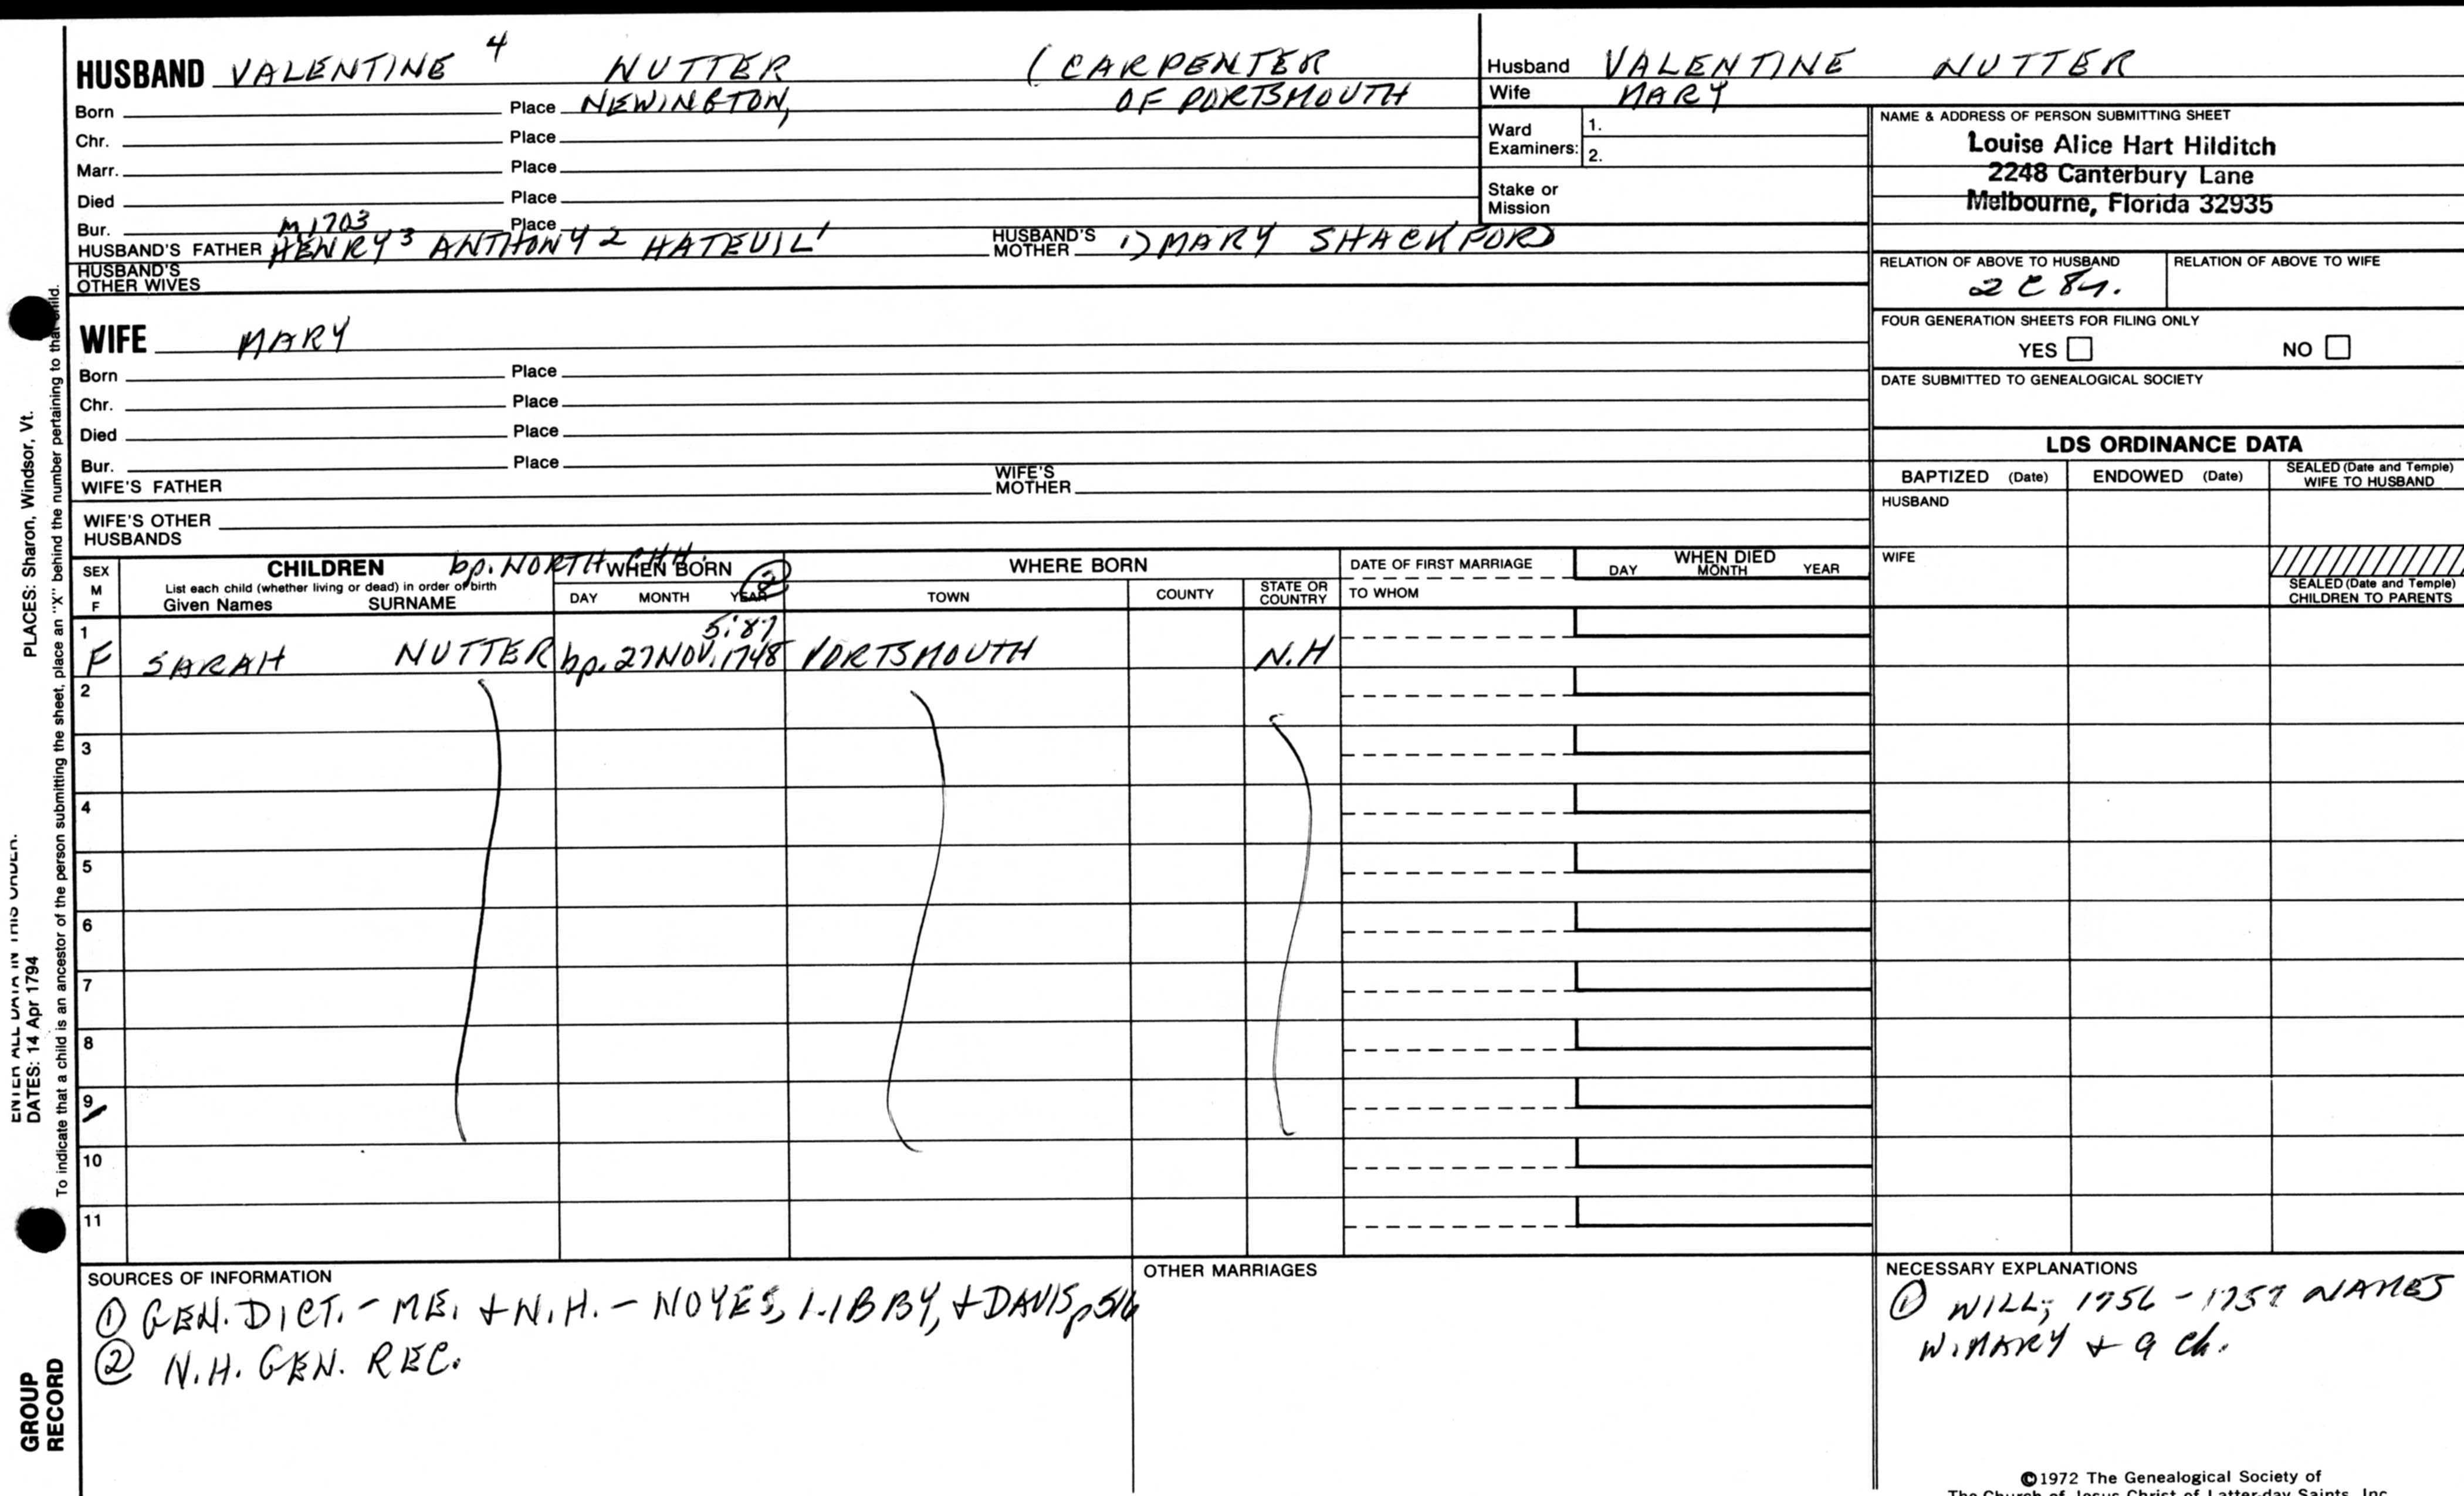 HUSBAND VALENTINE 4 NUTTER (CARPENTER
Born Place NEWINGTON, OF PORTSMOUTH
Chr. Place
Marr. Place
Died Place
Bur. M 1703 Place
HUSBAND'S FATHER HENRY 3 ANTHONY 2 HATEUIL 1 HUSBAND'S MOTHER 1) MARY SHACKFORD
HUSBAND'S OTHER WIVES
Husband VALENTINE NUTTER
Wife MARY
Ward Examiners: 1.
2.
Stake or Mission
NAME & ADDRESS OF PERSON SUBMITTING SHEET
Louise Alice Hart Hilditch
2248 Canterbury Lane
Melbourne, Florida 32935
RELATION OF ABOVE TO HUSBAND RELATION OF ABOVE TO WIFE
2 C 8r.
FOUR GENERATION SHEETS FOR FILING ONLY
YES NO
DATE SUBMITTED TO GENEALOGICAL SOCIETY
WIFE MARY
Born Place
Chr. Place
Died Place
Bur. Place
WIFE'S FATHER WIFE'S MOTHER
WIFE'S OTHER HUSBANDS
LDS ORDINANCE DATA
BAPTIZED (Date) ENDOWED (Date) SEALED (Date and Temple) WIFE TO HUSBAND
HUSBAND
WIFE
SEALED (Date and Temple) CHILDREN TO PARENTS
SEX M F
CHILDREN
List each child (whether living or dead) in order of birth
Given Names SURNAME
bp. NORTH CHH.
WHEN BORN 2
DAY MONTH YEAR
WHERE BORN
TOWN COUNTY STATE OR COUNTRY
DATE OF FIRST MARRIAGE
TO WHOM
WHEN DIED
DAY MONTH YEAR
1 5:87
F SARAH NUTTER bp. 27 NOV. 1748 PORTSMOUTH N.H
2
3
4
5
6
7
8
9
10
11
SOURCES OF INFORMATION
① GEN. DICT. - ME. + N.H. - NOYES, LIBBY, + DAVIS p516
② N.H. GEN. REC.
OTHER MARRIAGES
NECESSARY EXPLANATIONS
① WILL; 1756 - 1757 NAMES
W. MARY + 9 ch.
©1972 The Genealogical Society of
The Church of Jesus Christ of Latter-day Saints, Inc.
PLACES: Sharon, Windsor, Vt.
ENTER ALL DATA IN THIS ORDER:
DATES: 14 Apr 1794
To indicate that a child is an ancestor of the person submitting the sheet, place an "X" behind the number pertaining to that child.
GROUP
RECORD